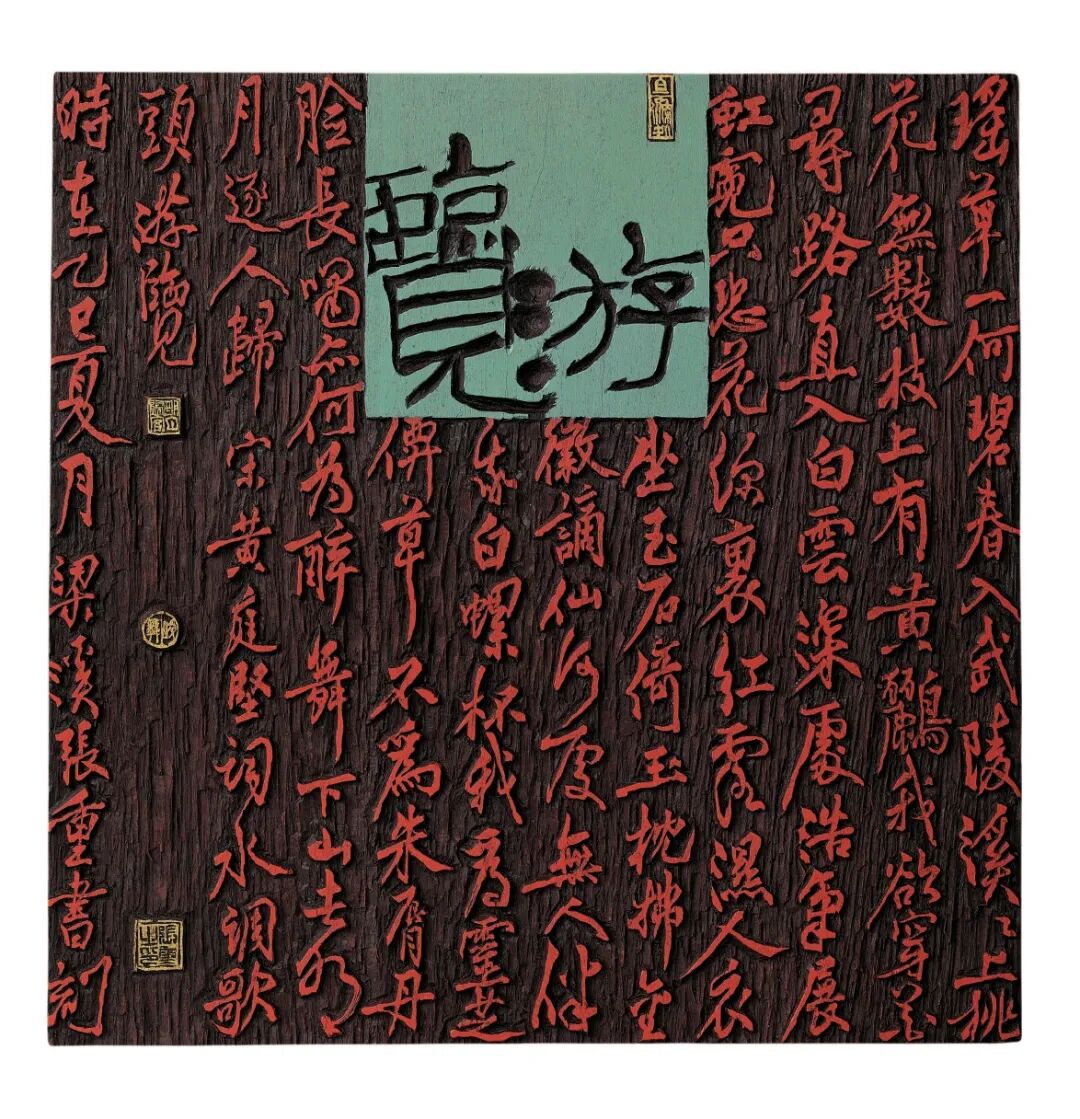 游覽
瑤草一何碧春入武陵溪〻上桃
花無數枝上有黃鸝我欲穿花
尋路直入白雲深處浩氣展
虹霓只恐花深裏紅露濕人衣
坐玉石倚玉枕拂金
徽謫仙何處無人伴
我白螺杯我為靈芝
僊草不為朱脣丹
臉長嘯亦何為醉舞下山去明
月逐人歸 宋黃庭堅詞水調歌
頭游覽
時在乙巳夏月梁溪張重書刻